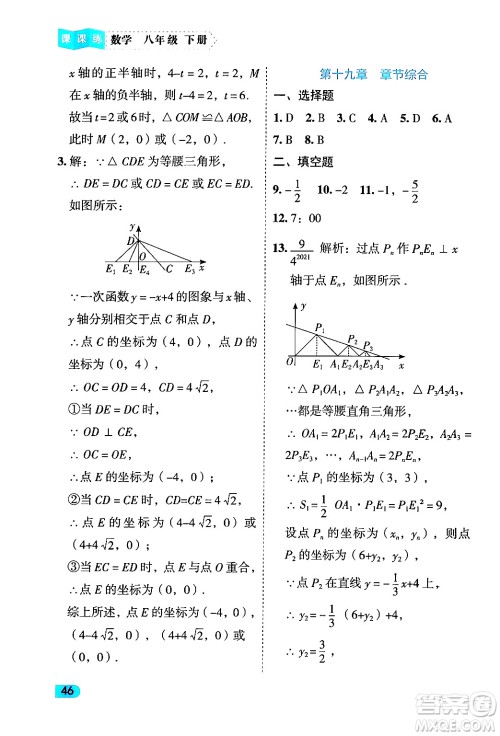 课课练 数学 八年级 下册
x 轴的正半轴时，4-t=2，t=6.
在 x 轴的负半轴时，t-4=2，t=6.
故当 t=2或6时，△COM≌△AOB，
此时 M（2，0）或（-2，0）.
3. 解：∵△CDE 为等腰三角形，
∴ DE=DC 或 CD=CE 或 EC=ED.
如图所示：
y
D
O
E₁ E₂ E₄ C E₃ x
∵一次函数 y=-x+4 的图象与 x 轴、
y 轴分别相交于点 C 和点 D，
∴点 C 的坐标为（4，0），点 D 的
坐标为（0，4），
∴ OC=OD=4，DC=4√2.
①当 DC=DE 时，
∵ OD⊥CE，
∴ OC=OE，
∴点 E 的坐标为（-4，0）；
②当 CD=CE 时，CD=CE=4√2，
∴点 E 的坐标为（4-4√2，0）或
（4+4√2，0）；
③当 EC=ED 时，点 E 与点 O 重合，
∴点 E 的坐标为（0，0）.
综上所述，点 E 的坐标为（-4，0）或
（4-4√2，0）或（4+4√2，0）或
（0，0）.
46
第十九章 章节综合
一、选择题
1. D 2. D 3. A 4. D 5. D 6. A
7. B 8. B
二、填空题
9. -1/2 10. -2 11. -5/2
12. 7：00
13. 9/4²⁰²¹ 解析：过点 Pₙ 作 PₙEₙ⊥x
轴于点 Eₙ，如图所示.
y
P₁
P₂
P₃
O E₁ A₁ E₂ A₂ E₃ A₃ x
∵△P₁OA₁，△P₂A₁A₂，△P₃A₂A₃，
…都是等腰直角三角形，
∴ OA₁=2P₁E₁，A₁A₂=2P₂E₂，A₂A₃=
2P₃E₃，…，Aₙ₋₁Aₙ=2PₙEₙ.
∵点 P₁ 的坐标为（3，3），
∴ S₁=1/2 OA₁·P₁E₁=P₁E₁²=9，
设点 Pₙ 的坐标为（xₙ，yₙ），则点
P₂ 的坐标为（6+y₂，y₂）.
∵点 P₂ 在直线 y=-1/3x+4 上，
∴ y₂=-1/3（6+y₂）+4，
∴ y₂=3/2，